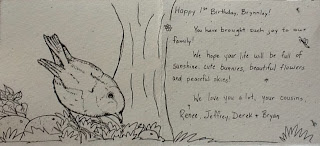 Happy 1st Birthday, Brynnley!
You have brought such joy to our
family!
We hope your life will be full of
sunshine, cute bunnies, beautiful flowers
and peaceful skies!
We love you a lot, your cousins,
Renee, Jeffrey, Derek + Bryan